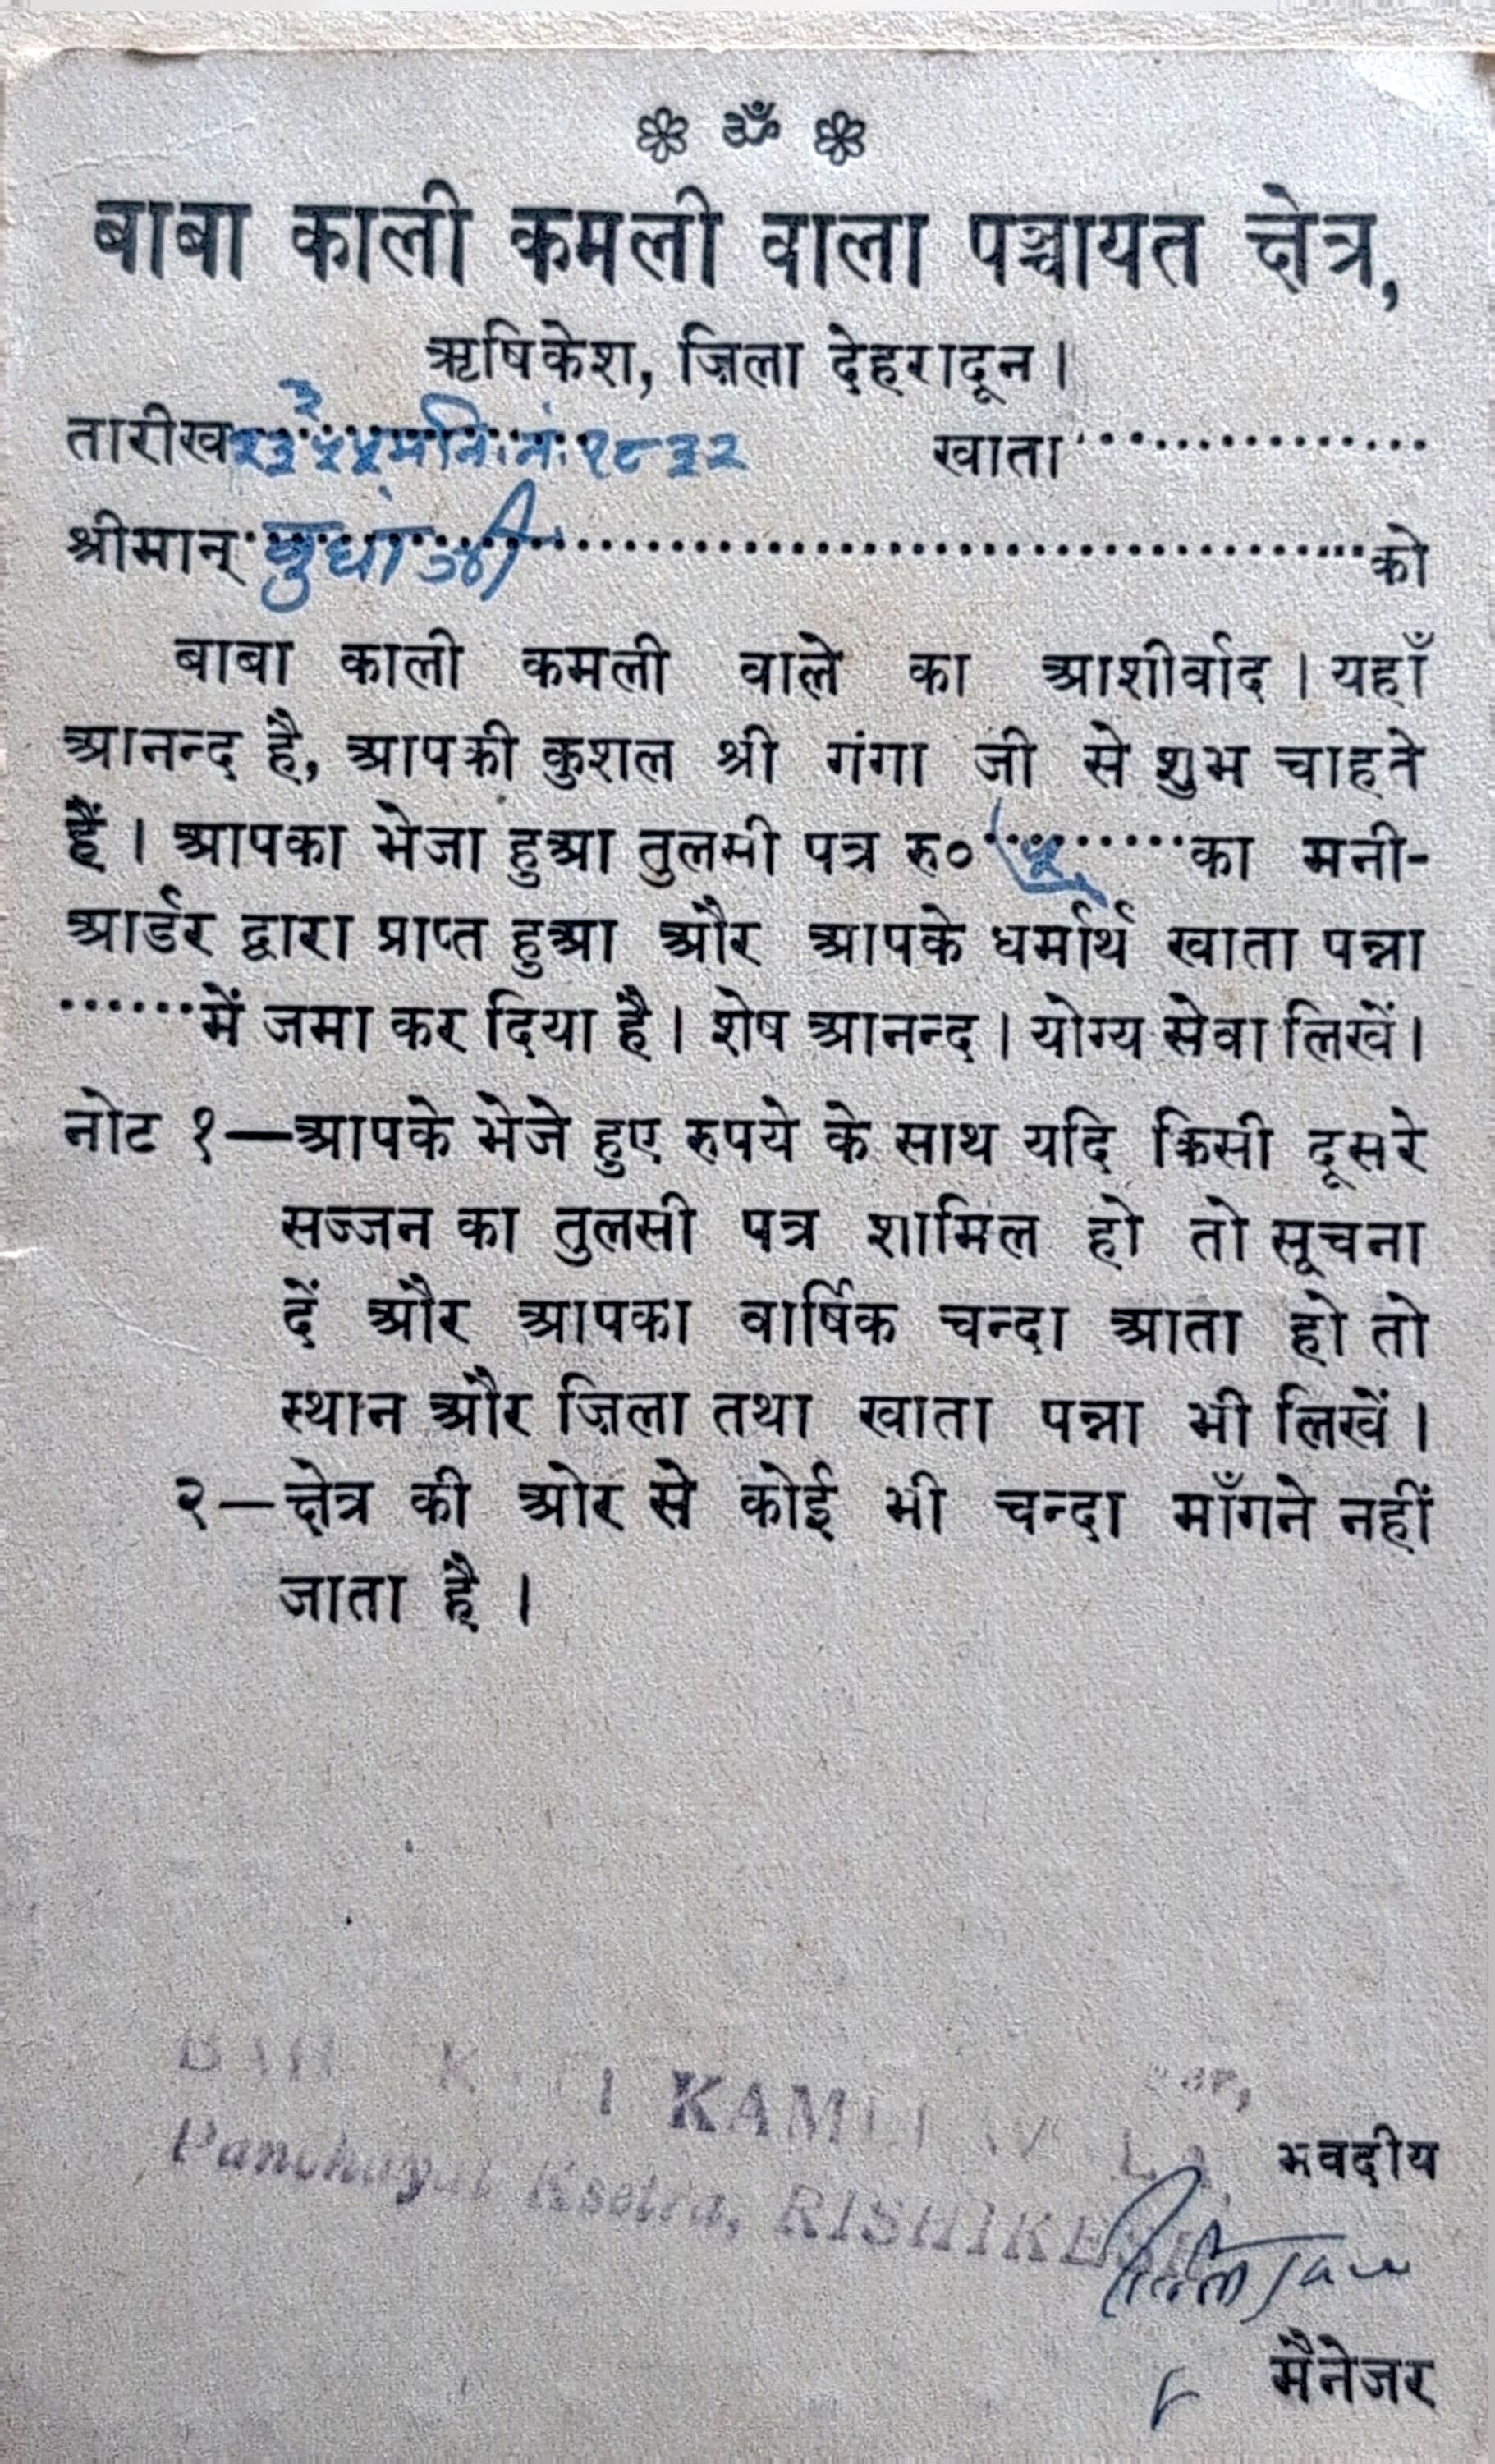 ॐ
बाबा काली कमली वाला पञ्चायत क्षेत्र,
ऋषिकेश, ज़िला देहरादून।
तारीख १८३२ खाता
श्रीमान् जी को
बाबा काली कमली वाले का आशीर्वाद। यहाँ
आनन्द है, आपकी कुशल श्री गंगा जी से शुभ चाहते
हैं। आपका भेजा हुआ तुलसी पत्र रु० ५ का मनी-
आर्डर द्वारा प्राप्त हुआ और आपके धर्मार्थ खाता पन्ना
......में जमा कर दिया है। शेष आनन्द। योग्य सेवा लिखें।
नोट १—आपके भेजे हुए रुपये के साथ यदि किसी दूसरे
सज्जन का तुलसी पत्र शामिल हो तो सूचना
दें और आपका वार्षिक चन्दा आता हो तो
स्थान और ज़िला तथा खाता पन्ना भी लिखें।
२—क्षेत्र की ओर से कोई भी चन्दा माँगने नहीं
जाता है।
KAMLI
Panchayat Ksetra, RISHIKESH
भवदीय
मैनेजर